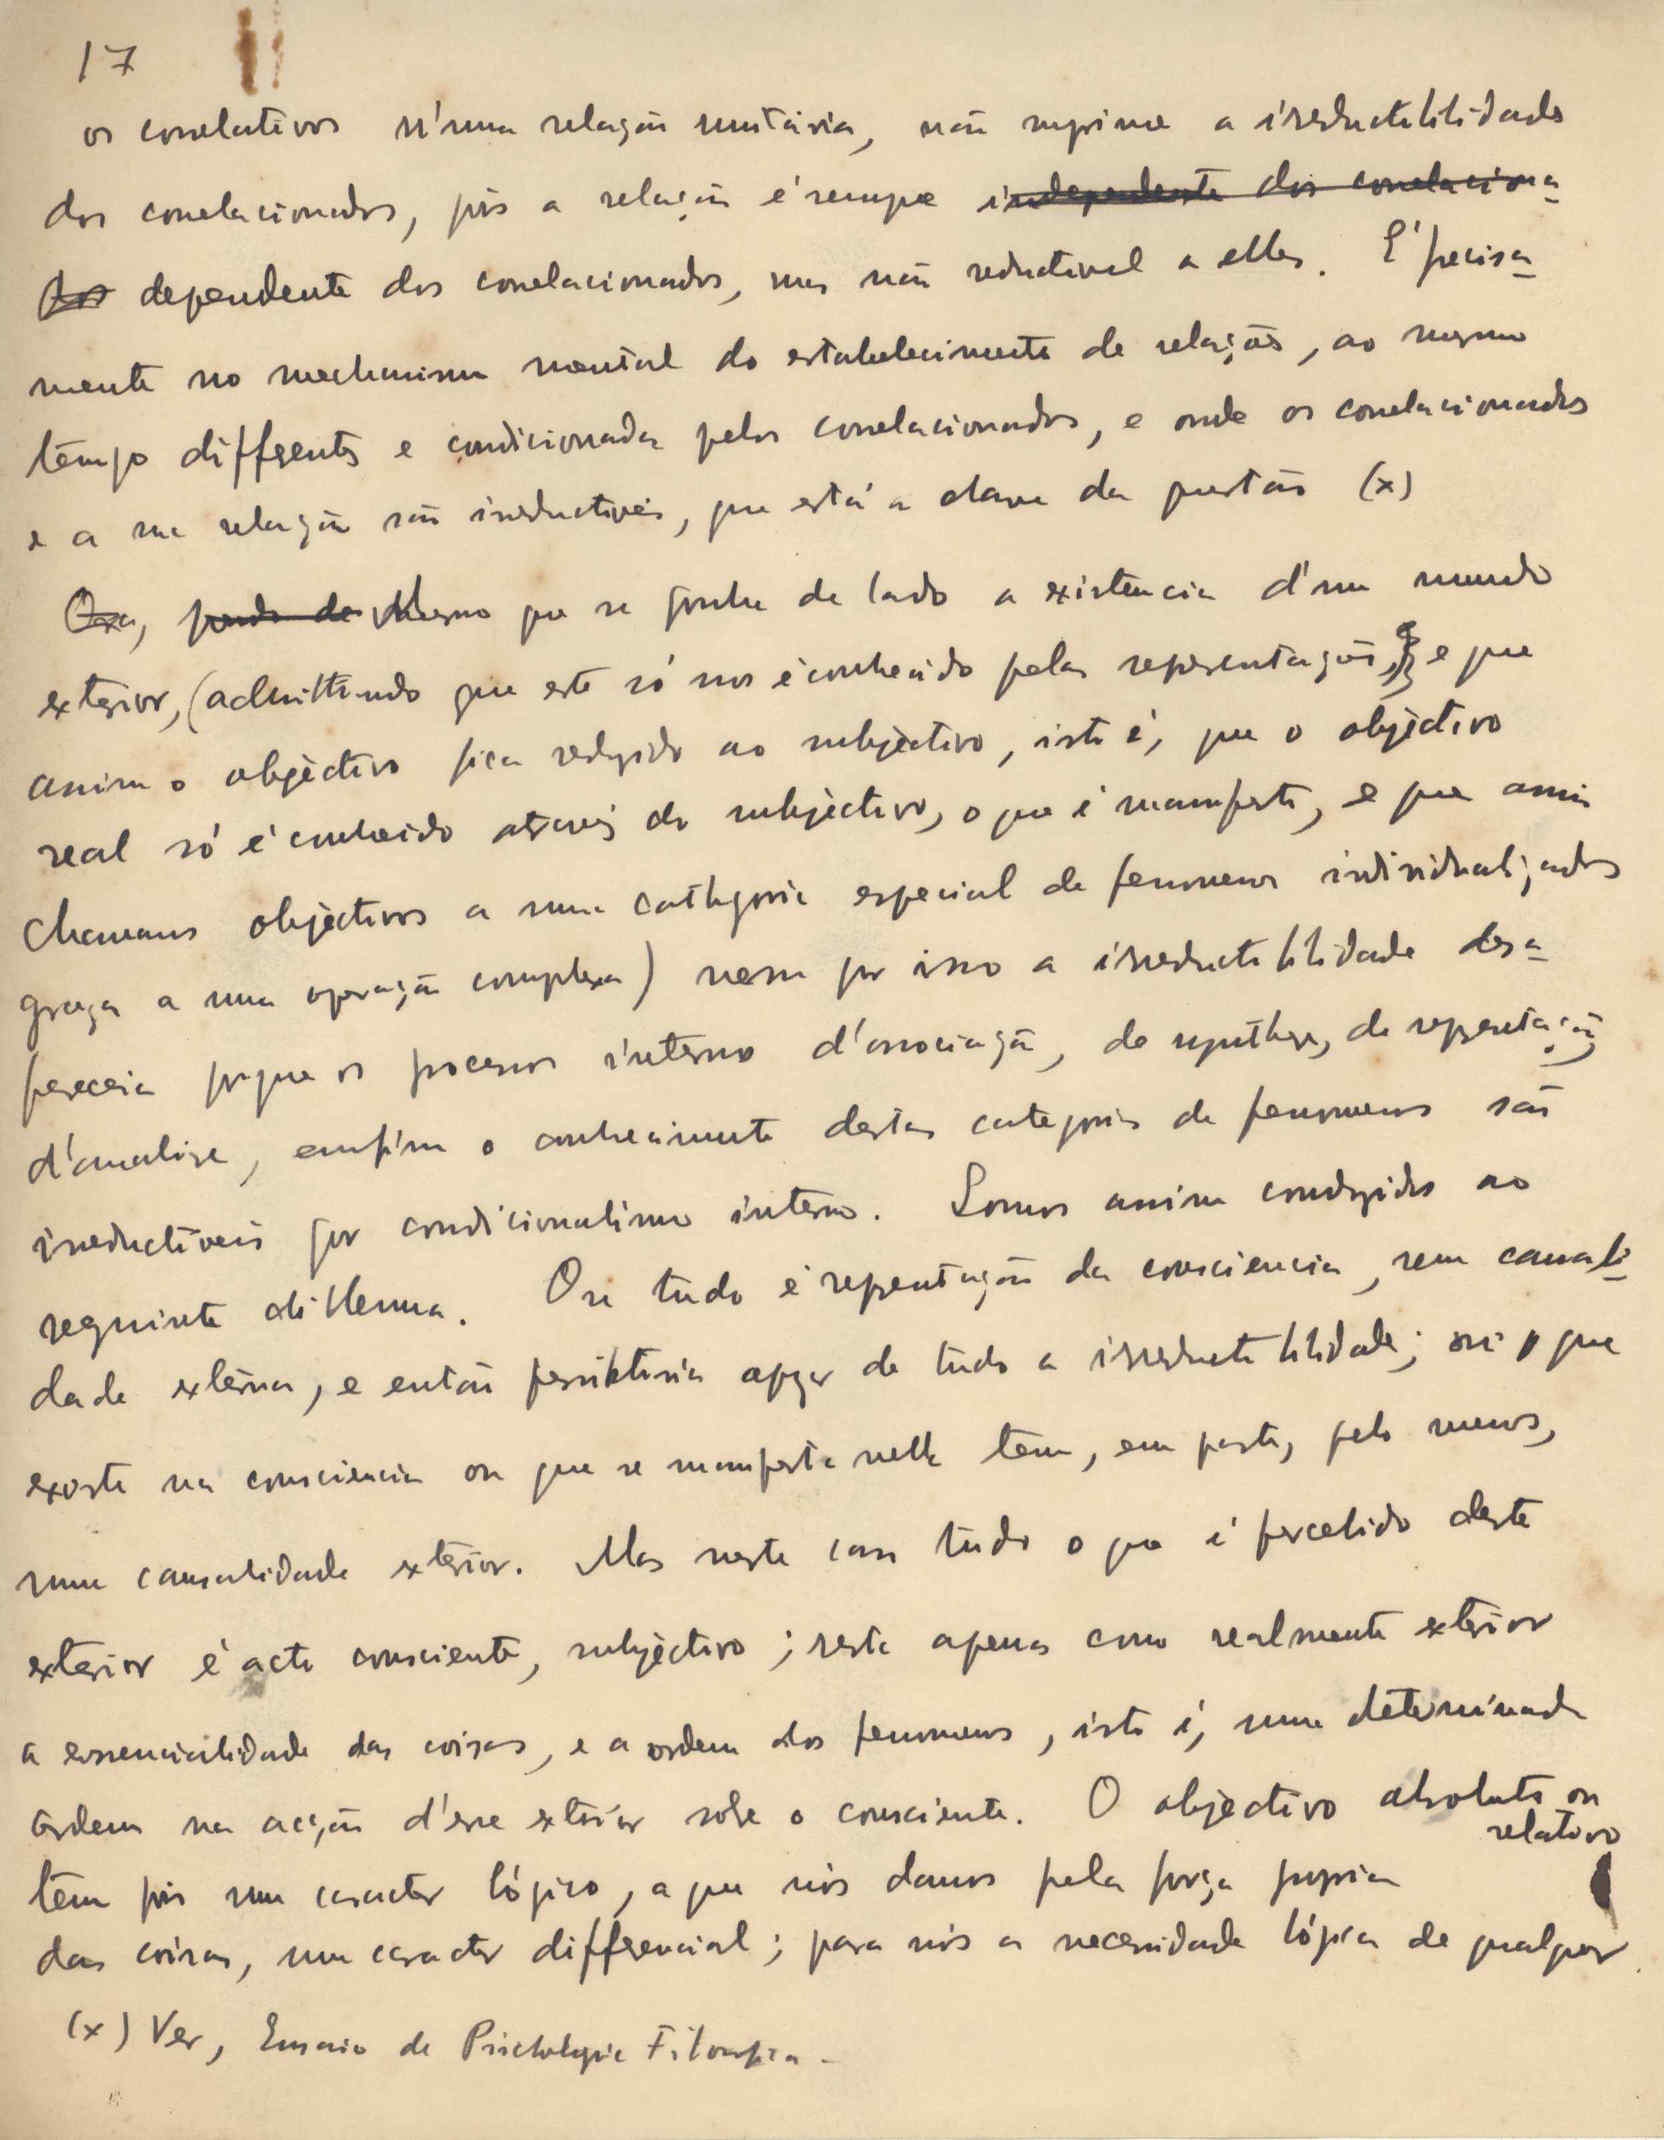 17
os correlativos n'uma relação unitária, não suprime a irreductibilidade
dos correlacionados, pois a relação é sempre independente dos correlaciona-
dos dependente dos correlacionados, mas não reductivel a elles. E' precisa-
mente no mechanismo mental do estabelecimento de relações, ao mesmo
tempo differentes e condicionadas pelos correlacionados, e onde os correlacionados
e a sua relação são irreductiveis, que está a chave da questão (x)
Ora, Mesmo que se ponha de lado a existência d'um mundo
exterior, (admittindo que este só nos é conhecido pelas representações, e que
assim o objèctivo fica reduzido ao subjèctivo, isto é, que o objèctivo
real só é conhecido através do subjèctivo, o que é manifesto, e que assim
chamamos objèctivos a uma cathegoria especial de fenomenos individualizados
graças a uma operação complexa) nem por isso a irreductibilidade desa-
pareceria porque os processos internos d'associação, de synthese, de representação,
d'analise, emfim o conhecimento destas categorias de fenomenos são
irreductiveis por condicionalismo interno. Somos assim conduzidos ao
seguinte dillemma. Ou tudo é representação da consciencia, sem causali-
dade externa, e então persistiria apezar de tudo a irreductibilidade; ou o que
existe na consciencia ou que se manifesta nella tem, em parte, pelo menos,
uma causalidade exterior. Mas neste caso tudo o que é percebido deste
exterior é acto consciente, subjèctivo; resta apenas como realmente exterior
a essencialidade das coisas, e a ordem dos fenomenos, isto é, uma determinada
ordem na acção d'esse exterior sobre o consciente. O objectivo absoluto ou
relativo
tem pois um caracter lógico, a que nós damos pela força propria
das coisas, um caracter differencial; para nós a necessidade lógica de qualquer
(x) Ver, Ensaio de Psichologia Filosofica.